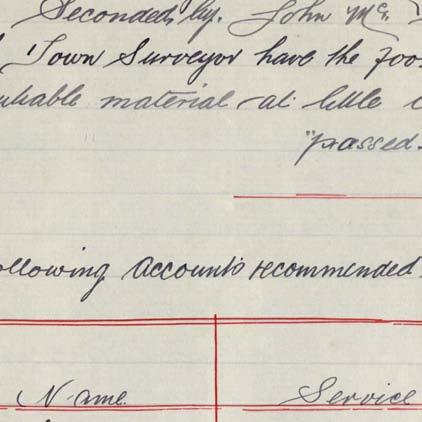 Seconded by. John Mc.
Town Surveyor have the foo
uitable material at little c
"passed.
ollowing Accounts recommended
Name Service